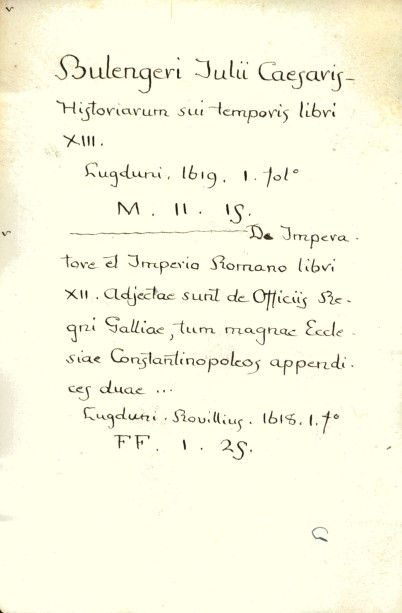 Bulengeri Iulii Caesaris-
Historiarum sui temporis libri
XIII.
Lugduni. 1619. 1. folº
M. II. 15.
De Impera-
tore et Imperio Romano libri
XII. Adjectae sunt de Officiis Re-
gni Galliae, tum magnae Eccle-
siae Constantinopoleos appendi-
ces duae ...
Lugduni. Rovillius. 1618. 1. fº
FF. 1. 25.